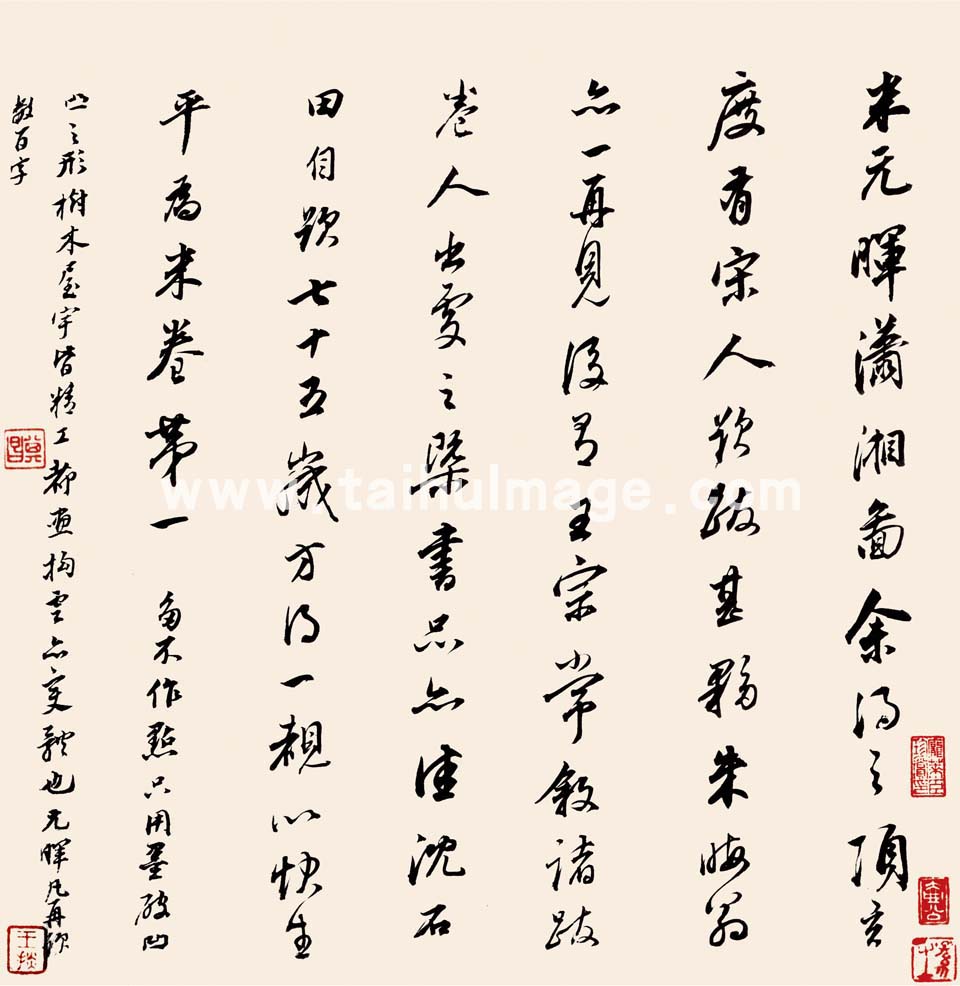 米元暉瀟湘圖余得之項玄
度有宋人題跋甚夥朱晦翁
亦一再見後有王宗常敘諸跋
卷人出處之槩書品亦佳沈石
田自題七十五歲方得一覩以快生
平為米卷第一
多不作點只用墨破凹
凸之形樹木屋宇皆精工都畫拘雲亦變體也元暉凡再題
數百字
王掞
www.taihuImage.com